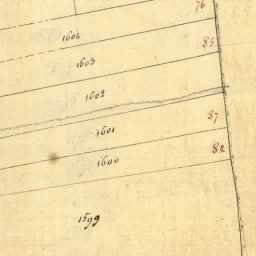 76
1604
85
1603
1602
87
1601
82
1600
1599